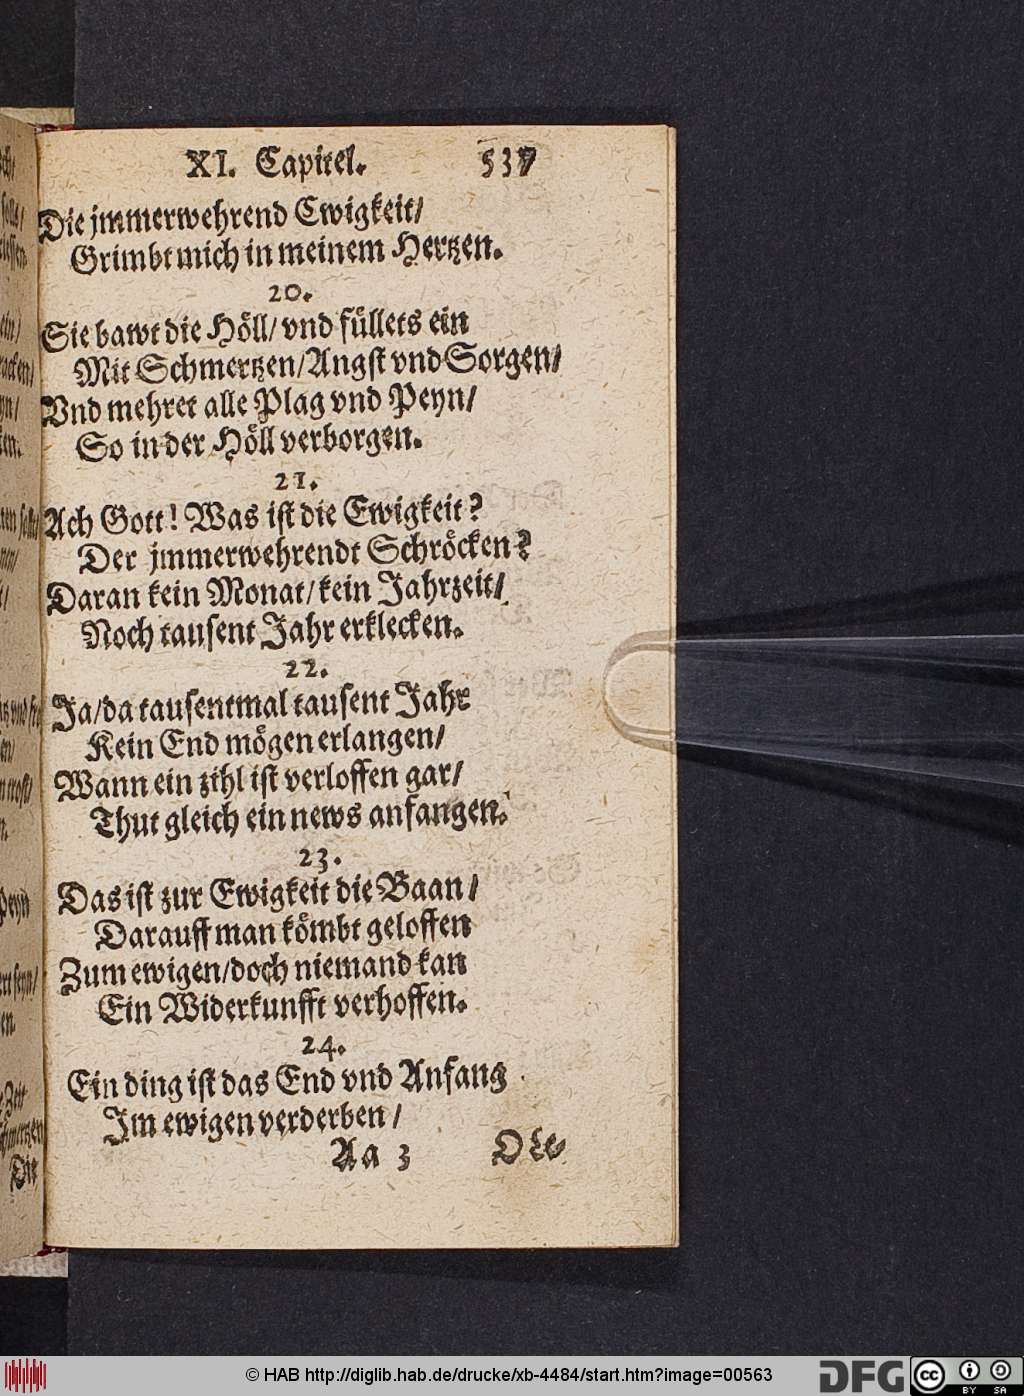 XI. Capitel. 537
Die jmmerwehrend Ewigkeit/
Grimbt mich in meinem Hertzen.
20.
Sie bawt die Höll/ vnd füllets ein
Mit Schmertzen/ Angst vnd Sorgen/
Vnd mehret alle Plag vnd Peyn/
So in der Höll verborgen.
21.
Ach Gott! Was ist die Ewigkeit?
Der jmmerwehrendt Schröcken?
Daran kein Monat/ kein Jahrzeit/
Noch tausent Jahr erklecken.
22.
Ja/ da tausentmal tausent Jahr
Kein End mögen erlangen/
Wann ein zihl ist verloffen gar/
Thut gleich ein news anfangen.
23.
Das ist zur Ewigkeit die Baan/
Darauff man kömbt geloffen
Zum ewigen/ doch niemand kan
Ein Widerkunfft verhoffen.
24.
Ein ding ist das End vnd Anfang
Im ewigen verderben/
Aa 3
© HAB http://diglib.hab.de/drucke/xb-4484/start.htm?image=00563
DFG
cc BY SA